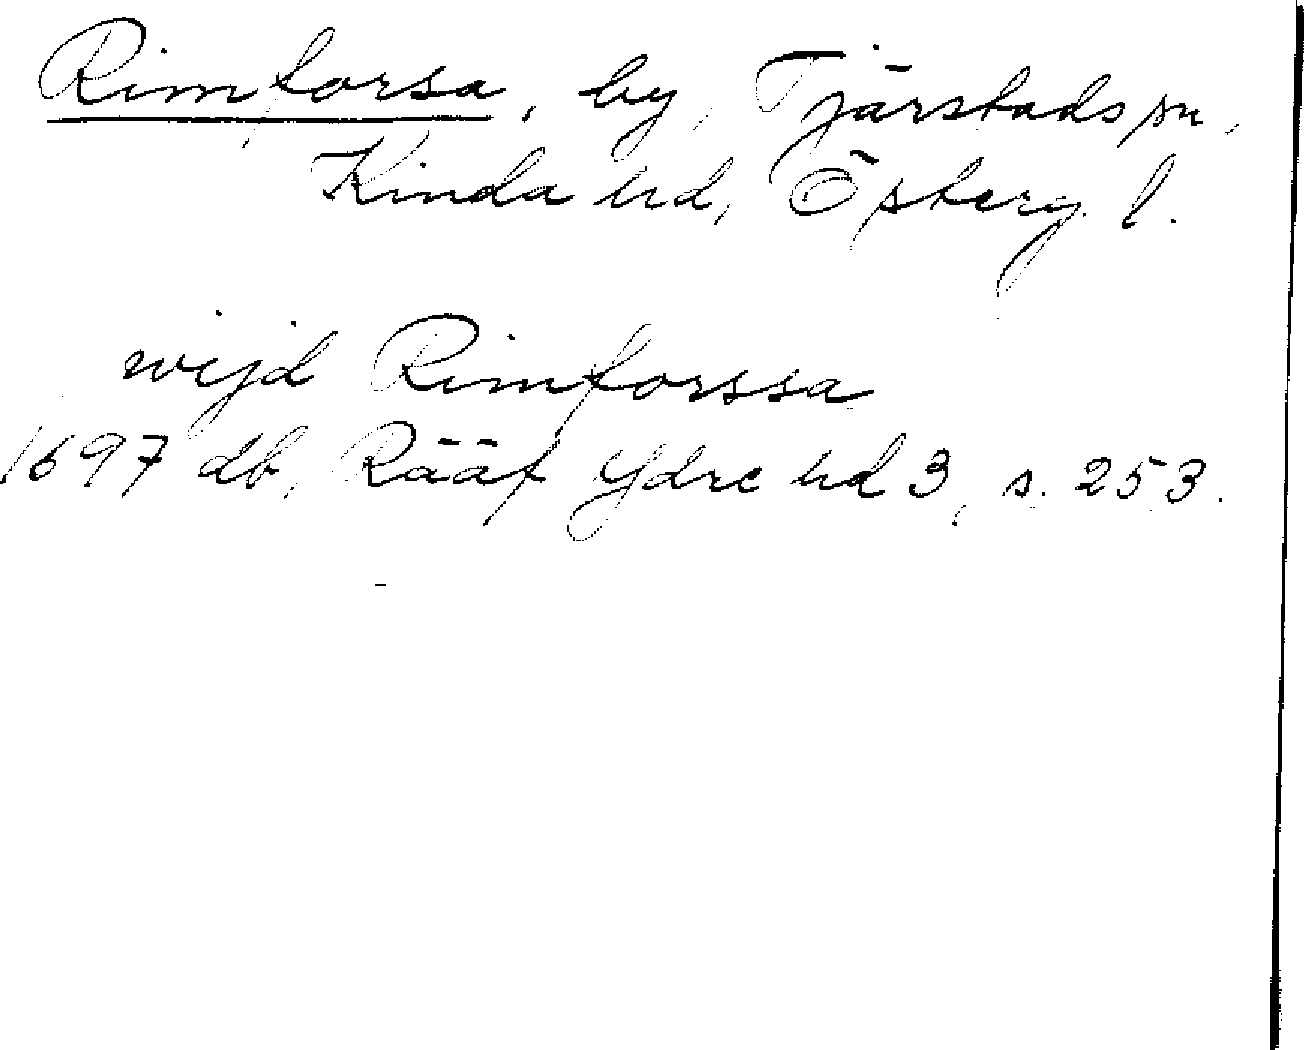 Rimforsa, by, Tjärstads sn,
Kinda hd, Österg. l.
wijd Rimforssa
1697 db, Rääf Ydre hd 3, s. 253.